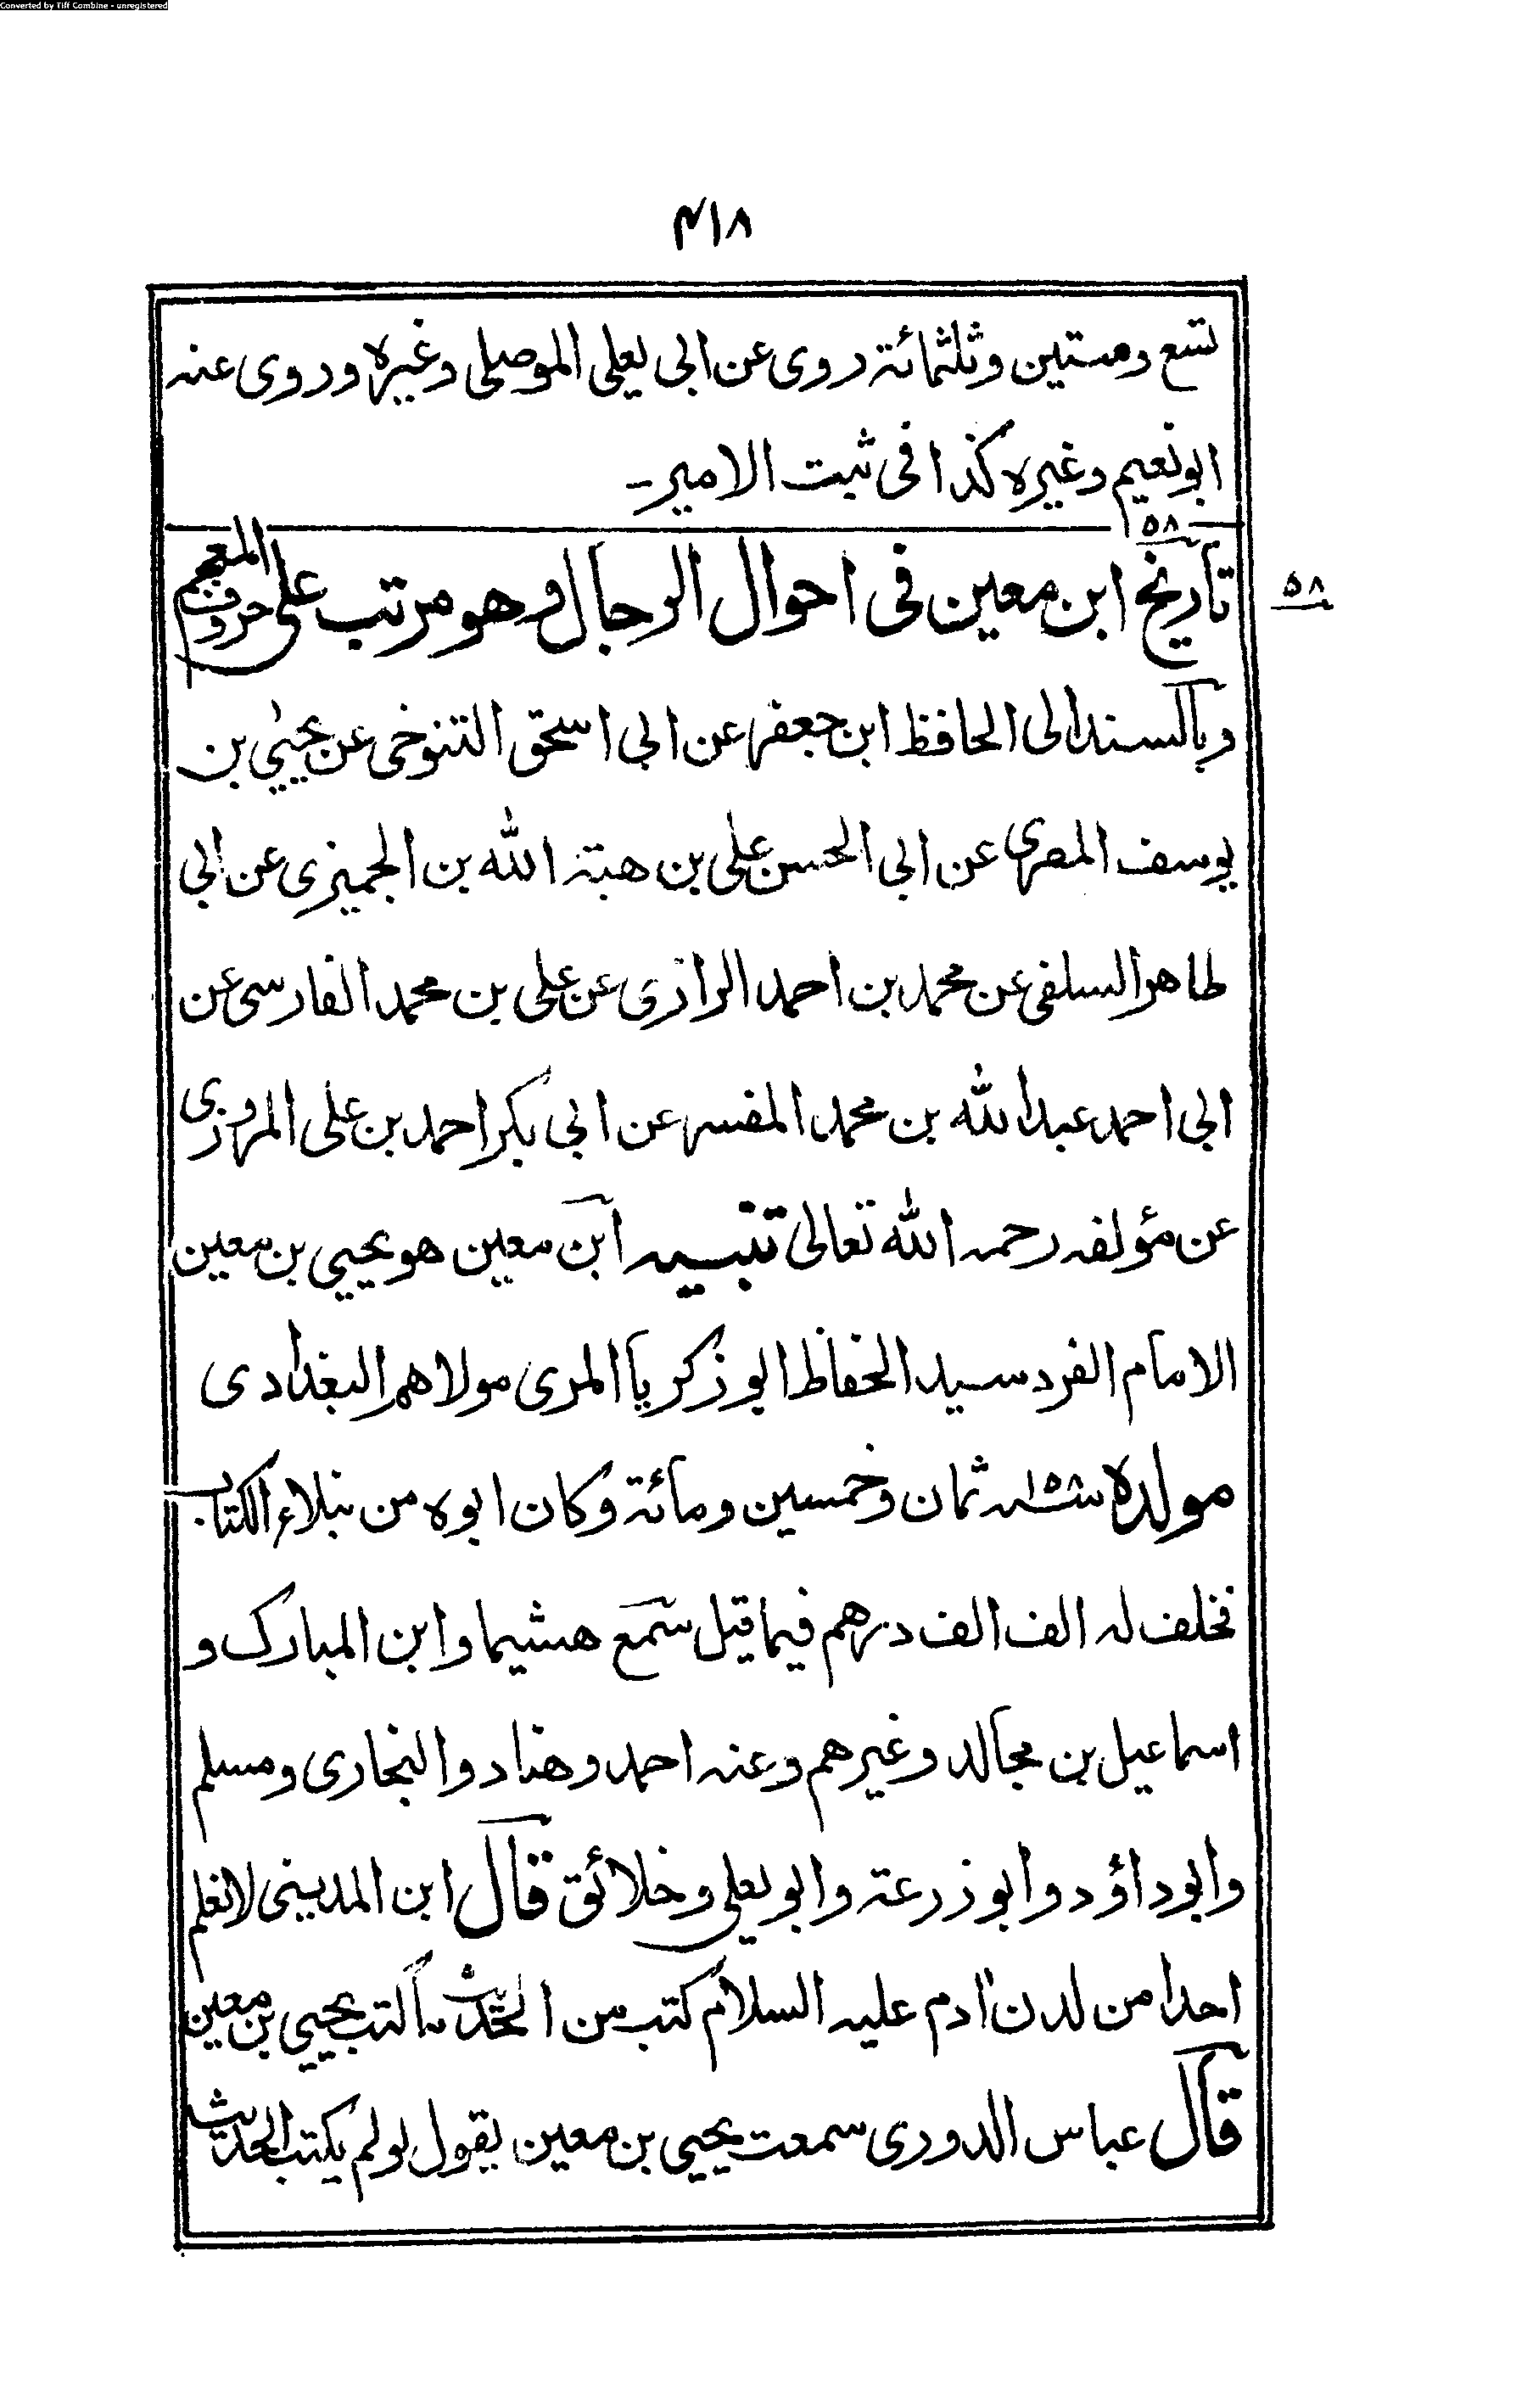 Converted by Tiff Combine - unregistered
۴۱۸
تسع وستين وثلثمائة روى عن ابى يعلى الموصلى وغيره وروى عنه
ابو نعيم وغيره كذا فى ثبت الامير-
۵۸
تاريخ ابن معين فى احوال الرجال وهو مرتب على حروف المعجم
۵۸
وبالسند الى الحافظ ابن جعفر عن ابى اسحق التنوخى عن يحيى بن
يوسف المصرى عن ابى الحسن على بن هبة الله بن الجميزى عن ابى
طاهر السلفى عن محمد بن احمد الرازى عن على بن محمد الفارسى عن
ابى احمد عبد الله بن محمد المفسر عن ابى بكر احمد بن على المروزى
عن مؤلفه رحمه الله تعالى تنبيه ابن معين هو يحيى بن معين
الامام الفرد سيد الحفاظ ابو زكريا المرى مولاهم البغدادى
مولده ۱۵۸ ثمان وخمسين ومائة وكان ابوه من نبلاء الكتاب
فخلف له الف الف درهم فيما قيل سمع هشيما وابن المبارك و
اسماعيل بن مجالد وغيرهم وعنه احمد وهناد والبخارى ومسلم
وابو داؤد وابو زرعة وابو يعلى وخلائق قال ابن المدينى لا نعلم
احدا من لدن ادم عليه السلام كتب من الحديث ما كتب يحيى بن معين
قال عباس الدورى سمعت يحيى بن معين يقول لو لم يكتب الحديث